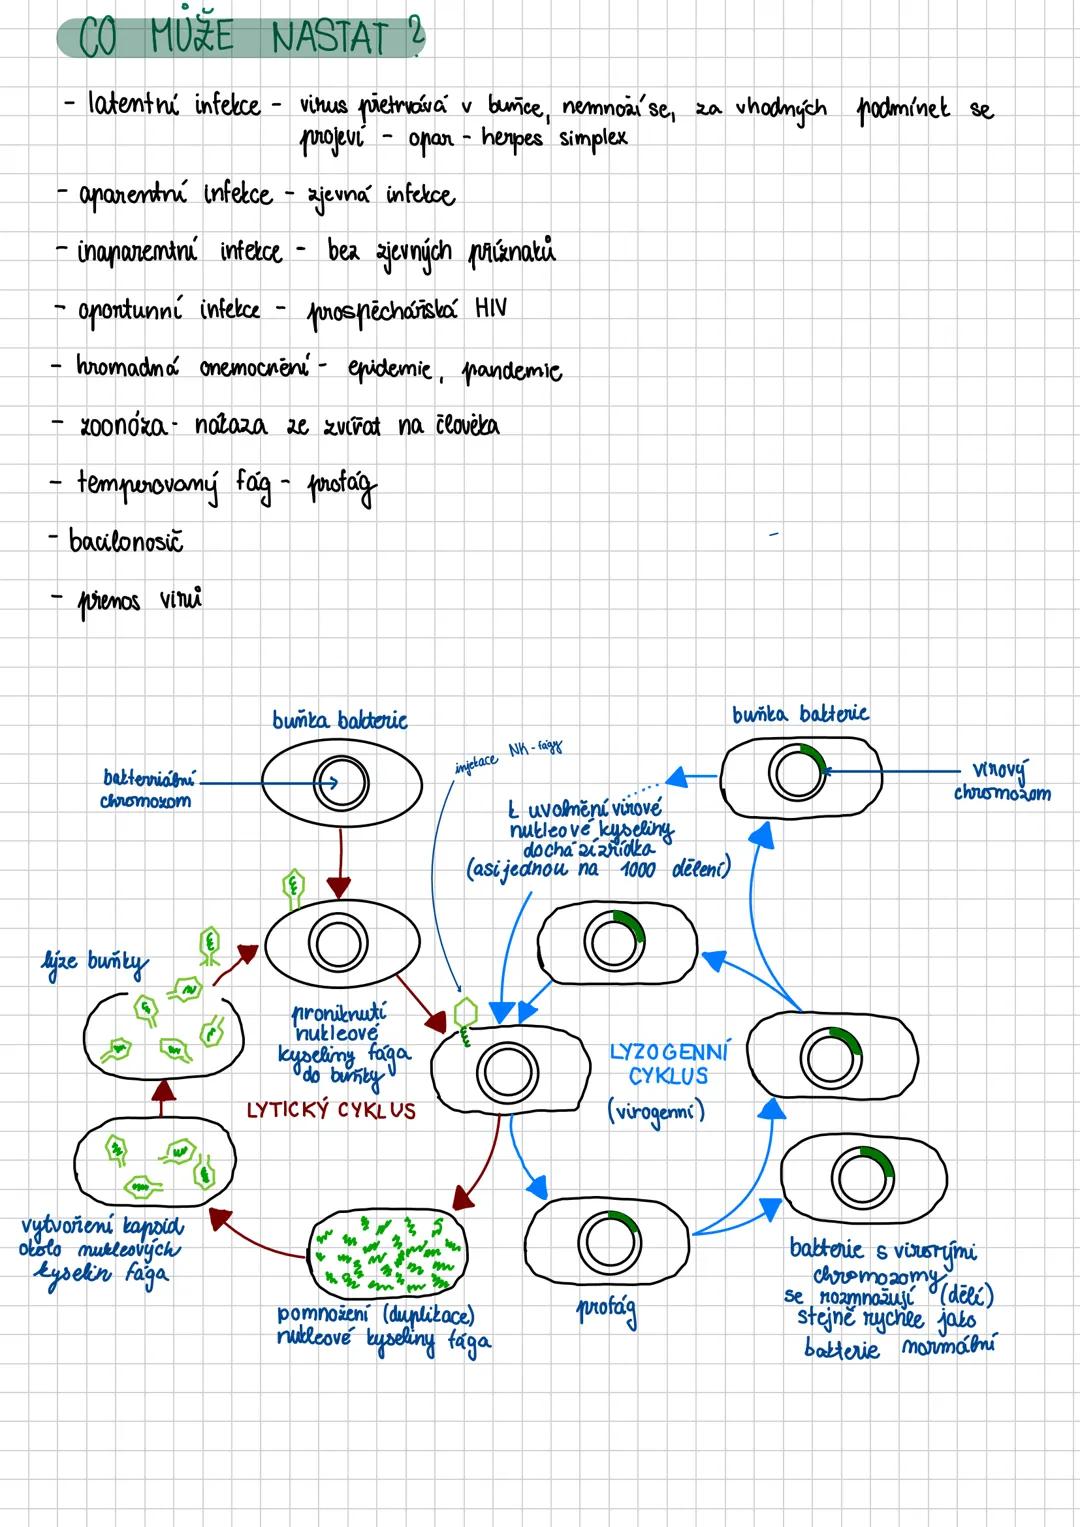 CO MŮŽE NASTAT?
- latentní infekce - virus přetrvává v buňce, nemnoží se, za vhodných podmínek se
projeví - opar - herpes simplex
- aparentní infekce - zjevná infekce
- inaparentní infekce - bez zjevných příznaků
- oportunní infekce - prospěchářská HIV
- hromadná onemocnění - epidemie, pandemie
- zoonóza - nákaza ze zvířat na člověka
- temperovaný fág - profág
- bacilonosič
- přenos virů
buňka bakterie
bakterriální
chromozom
injekace NK-fágy
buňka bakterie
virový
chromozom
k uvolnění virové
nukleové kyseliny
dochází zřídka
(asi jednou na 1000 dělení)
lýze buňky
proniknutí
nukleové
kyseliny fága
do buňky
LYTICKÝ CYKLUS
LYZOGENNÍ
CYKLUS
(virogenní)
vytvoření kapsid
okolo nukleových
kyselin fága
pomnožení (duplikace)
nukleové kyseliny fága
profág
bakterie s virovými
chromozomy
se rozmnožují (dělí)
stejně rychle jako
bakterie normální